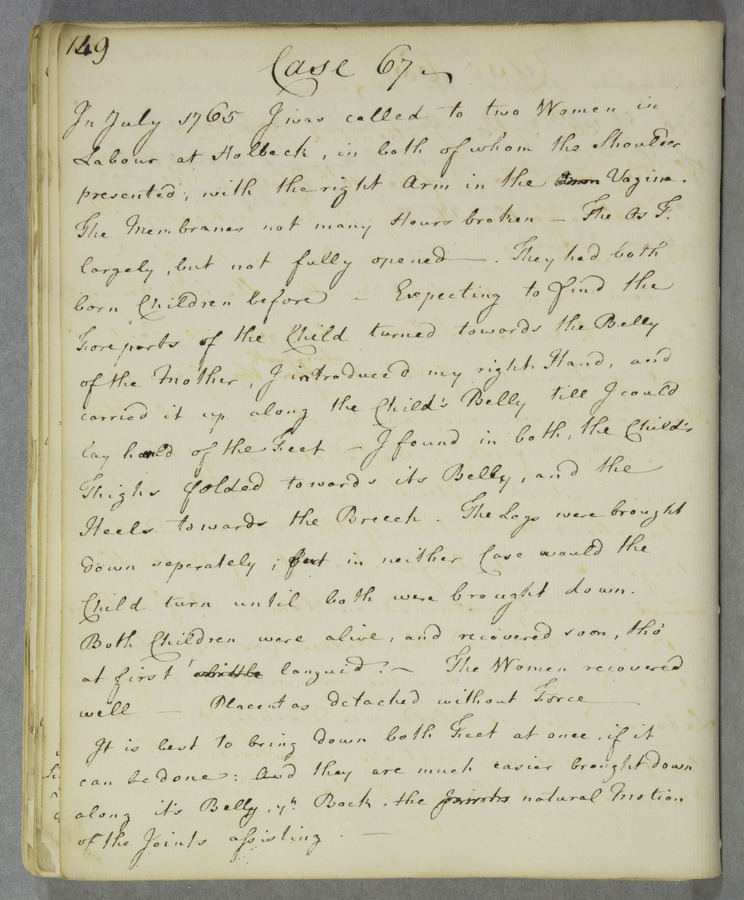 149
Case 67
In July 1765 I was called to two Women in
Labour at Holbeck, in both of whom the Shoulder
presented; with the right Arm in the Vagina.
The Membranes not many Hours broken — The Os T.
largely, but not fully opened —. They had both
born Children before — Expecting to find the
Foreparts of the Child turned towards the Belly
of the Mother, I introduced my right Hand, and
carried it up along the Child's Belly till I could
lay hold of the Feet — I found in both, the Child's
Thighs folded towards its Belly, and the
Heels towards the Breech. The Legs were brought
down seperately; but in neither Case would the
Child turn until both were brought down.
Both Children were alive, and recovered soon, tho'
at first languid. — The Women recovered
well — Placentas detached without Force
It is best to bring down both Feet at once, if it
can be done: And they are much easier brought down
along its Belly, yn. Back, the natural Motion
of the Joints assisting. —